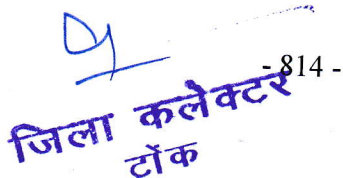 - 814 -
जिला कलेक्टर
टोंक